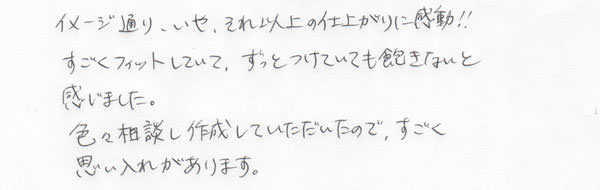 イメージ通り、いや、それ以上の仕上がりに感動!!
すごくフィットしていて、ずっとつけていても飽きないと
感じました。
色々相談し作成していただいたので、すごく
思い入れがあります。